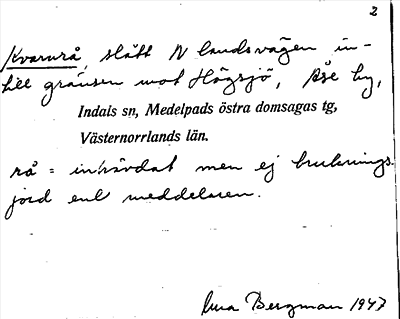 2
Kvarnrå, slått N landsvägen in-
till gränsen mot Högsjö, Åse by,
Indals sn, Medelpads östra domsagas tg,
Västernorrlands län.
rå = inhävdat men ej bruknings-
jord enl meddelaren.
Bergman 1947